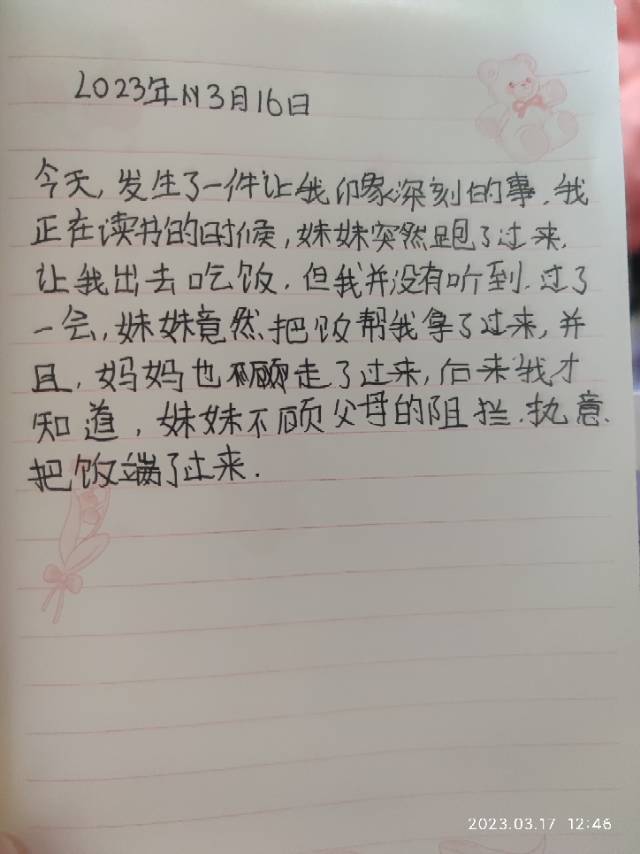 2023年3月16日
今天,发生了一件让我印象深刻的事.我
正在读书的时候,妹妹突然跑了过来.
让我出去吃饭.但我并没有听到.过了
一会,妹妹竟然把饭帮我拿了过来,并
且,妈妈也走了过来,后来我才
知道,妹妹不顾父母的阻拦.执意.
把饭端了过来.
2023.03.17 12:46